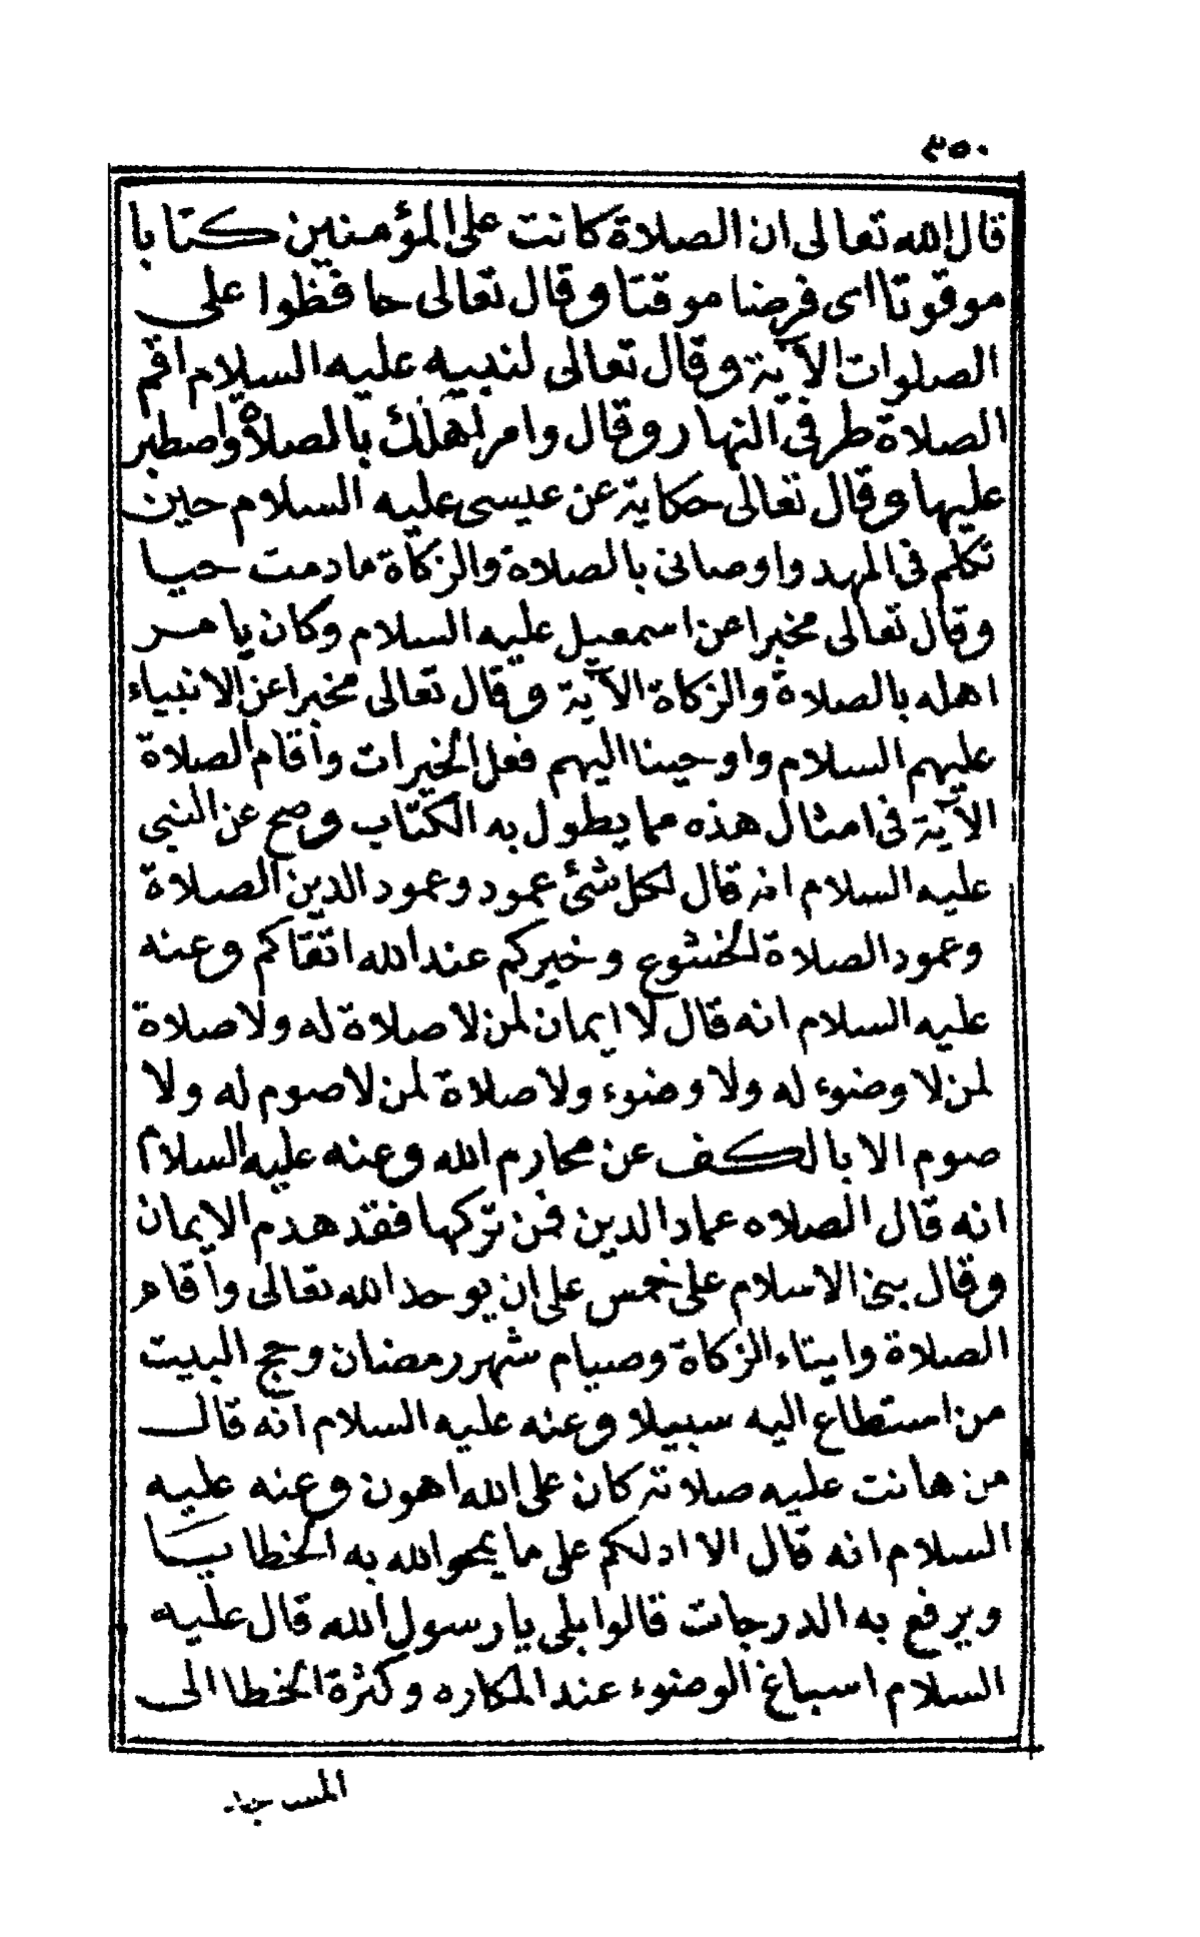 ٣٥٠
قال الله تعالى ان الصلاة كانت على المؤمنين كتابا
موقوتا اى فرضا موقتا وقال تعالى حافظوا على
الصلوات الآية وقال تعالى لنبيه عليه السلام اقم
الصلاة طرفى النهار وقال وامر اهلك بالصلاة واصطبر
عليها وقال تعالى حكاية عن عيسى عليه السلام حين
تكلم فى المهد واوصانى بالصلاة والزكاة مادمت حيا
وقال تعالى مخبرا عن اسمعيل عليه السلام وكان يامر
اهله بالصلاة والزكاة الآية وقال تعالى مخبرا عن الانبياء
عليهم السلام واوحينا اليهم فعل الخيرات وأقام الصلاة
الآية فى امثال هذه مما يطول به الكتاب وصح عن النبى
عليه السلام انه قال لكل شئ عمود وعمود الدين الصلاة
وعمود الصلاة الخشوع وخيركم عند الله اتقاكم وعنه
عليه السلام انه قال لا ايمان لمن لا صلاة له ولا صلاة
لمن لا وضوء له ولا وضوء ولا صلاة لمن لا صوم له ولا
صوم الا بالكف عن محارم الله وعنه عليه السلام
انه قال الصلاه عماد الدين فمن تركها فقد هدم الايمان
وقال بنى الاسلام على خمس على ان يوحد الله تعالى وأقام
الصلاة وايتاء الزكاة وصيام شهر رمضان وحج البيت
من استطاع اليه سبيلا وعنه عليه السلام انه قال
من هانت عليه صلاته كان على الله اهون وعنه عليه
السلام انه قال الا ادلكم على ما يمحو الله به الخطايا
ويرفع به الدرجات قالوا بلى يا رسول الله قال عليه
السلام اسباغ الوضوء عند المكاره وكثرة الخطا الى
المساجد